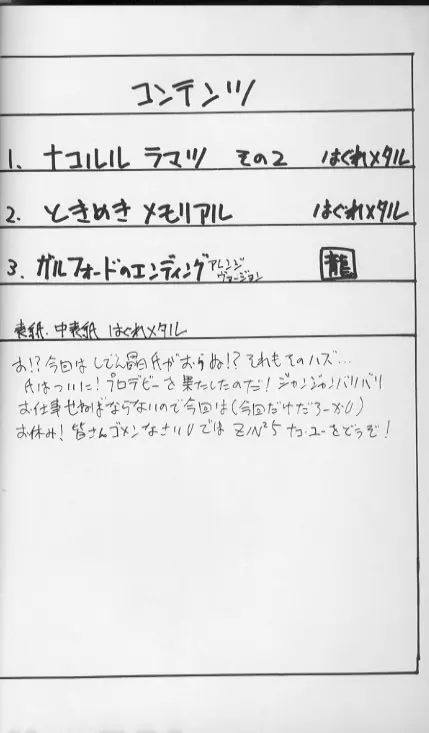 コンテンツ
1. ナコルル ラマツ その2 はぐれメタル
2. ときめき メモリアル はぐれメタル
3. ガルフォードのエンディング アレンジ ヴァージョン 龍
表紙・中表紙 はぐれメタル
お!?今回はしでん晶氏がおらぬ!?それもそのハズ…
氏はついに!プロデビーを果たしたのだ!ジャンジャンバリバリ
お仕事せねばならないので今回は(今回だけだろーか)
お休み!皆さんゴメンなさい では をどうぞ!